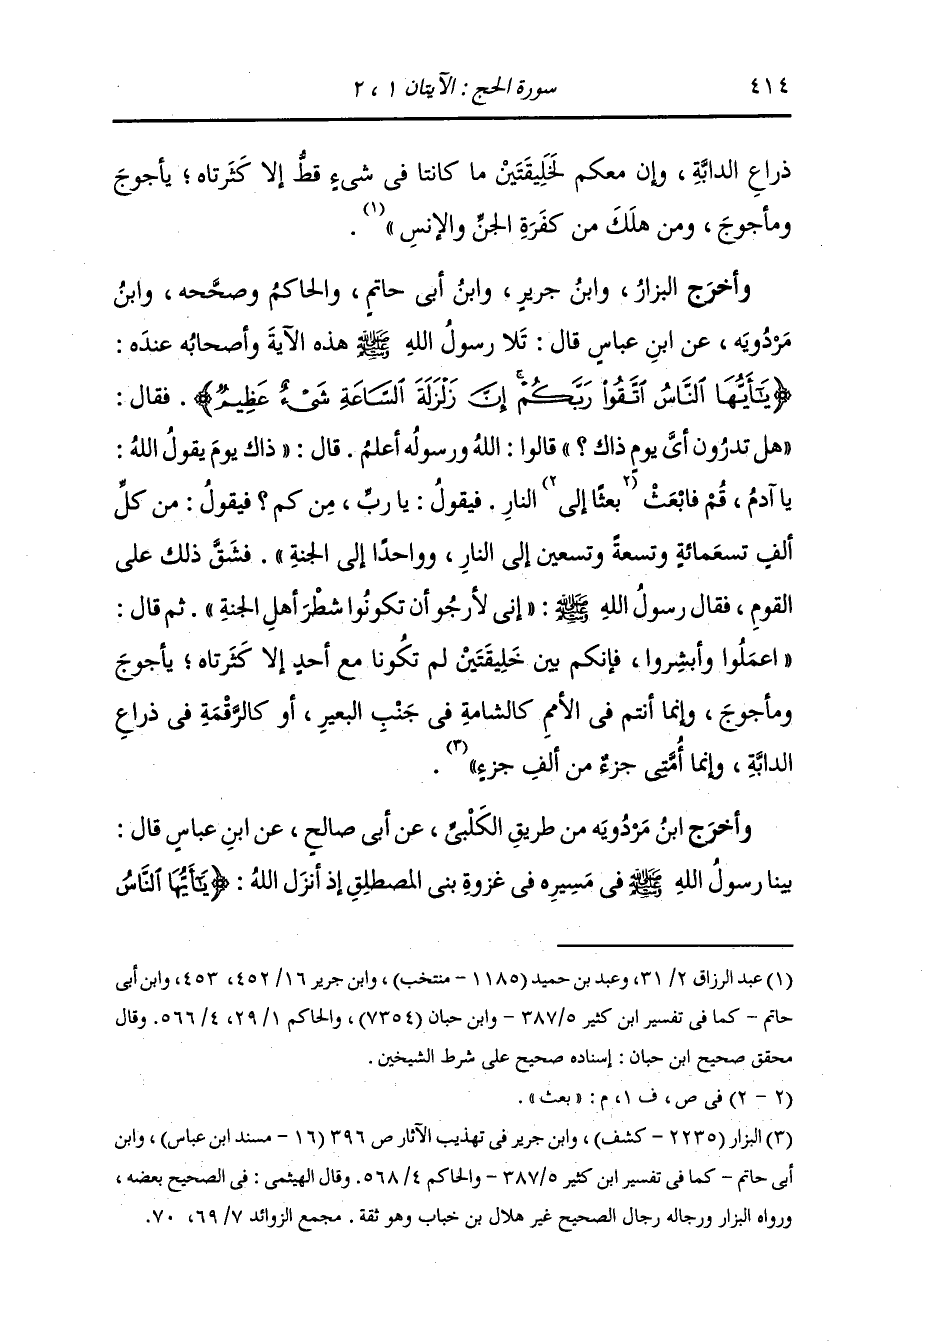 ٤١٤ سورة الحج : الآيتان ١ ، ٢
ذراعِ الدابَّةِ ، وإن معكم لَخَلِيقَتَيْنْ ما كانتا فى شىءٍ قطُّ إلا كَثَرتاه ؛ يأجوجَ
ومأجوجَ ، ومن هلَكَ من كفَرَةِ الجنِّ والإنسِ »(١) .
وأخرَج البزارُ ، وابنُ جريرٍ ، وابنُ أبى حاتمٍ ، والحاكمُ وصحَّحه ، وابنُ
مَرْدُويَه ، عن ابنِ عباسٍ قال : تَلا رسولُ اللهِ ﷺ هذه الآيةَ وأصحابُه عندَه :
﴿يَٰٓأَيُّهَا ٱلنَّاسُ ٱتَّقُوا۟ رَبَّكُمْ ۚ إِنَّ زَلْزَلَةَ ٱلسَّاعَةِ شَىْءٌ عَظِيمٌ﴾ . فقال :
«هل تدرُون أىَّ يومٍ ذاك ؟ » قالوا : اللهُ ورسولُه أعلمُ . قال : « ذاك يومَ يقولُ اللهُ :
يا آدمُ ، قُمْ فابْعَثْ (٢بعثًا إلى٢) النارِ . فيقولُ : يا ربِّ ، مِن كم ؟ فيقولُ : من كلِّ
ألفٍ تسعَمائةٍ وتسعةً وتسعين إلى النارِ ، وواحدًا إلى الجنةِ » . فشَقَّ ذلك على
القومِ ، فقال رسولُ اللهِ ﷺ : « إنى لأرجُو أن تكونُوا شطْرَ أهلِ الجنةِ » . ثم قال :
« اعمَلُوا وأبشِروا ، فإنكم بين خَلِيقَتَيْنْ لم تكُونا مع أحدٍ إلا كَثَرتاه ؛ يأجوجَ
ومأجوجَ ، وإنما أنتم فى الأممِ كالشامةِ فى جَنْبِ البعيرِ ، أو كالرَّقْمَةِ فى ذراعِ
الدابَّةِ ، وإنما أُمَّتِى جزءٌ من ألفِ جزءٍ»(٣) .
وأخرَج ابنُ مَرْدُويَه من طريقِ الكَلْبىِّ ، عن أبى صالحٍ ، عن ابنِ عباسٍ قال :
بينا رسولُ اللهِ ﷺ فى مَسِيرِه فى غزوةِ بنى المصطلِقِ إذ أنزَل اللهُ : ﴿يَٰٓأَيُّهَا ٱلنَّاسُ
(١) عبد الرزاق ٢/ ٣١، وعبد بن حميد (١١٨٥ - منتخب) ، وابن جرير ١٦/ ٤٥٢، ٤٥٣، وابن أبى
حاتم - كما فى تفسير ابن كثير ٣٨٧/٥ - وابن حبان (٧٣٥٤) ، والحاكم ١/ ٢٩، ٤/ ٥٦٦. وقال
محقق صحيح ابن حبان : إسناده صحيح على شرط الشيخين .
(٢ - ٢) فى ص ، ف ١، م : « بعث » .
(٣) البزار (٢٢٣٥ - كشف) ، وابن جرير فى تهذيب الآثار ص ٣٩٦ (١٦ - مسند ابن عباس) ، وابن
أبى حاتم - كما فى تفسير ابن كثير ٣٨٧/٥ - والحاكم ٤/ ٥٦٨. وقال الهيثمى : فى الصحيح بعضه ،
ورواه البزار ورجاله رجال الصحيح غير هلال بن خباب وهو ثقة . مجمع الزوائد ٧/ ٦٩، ٧٠.